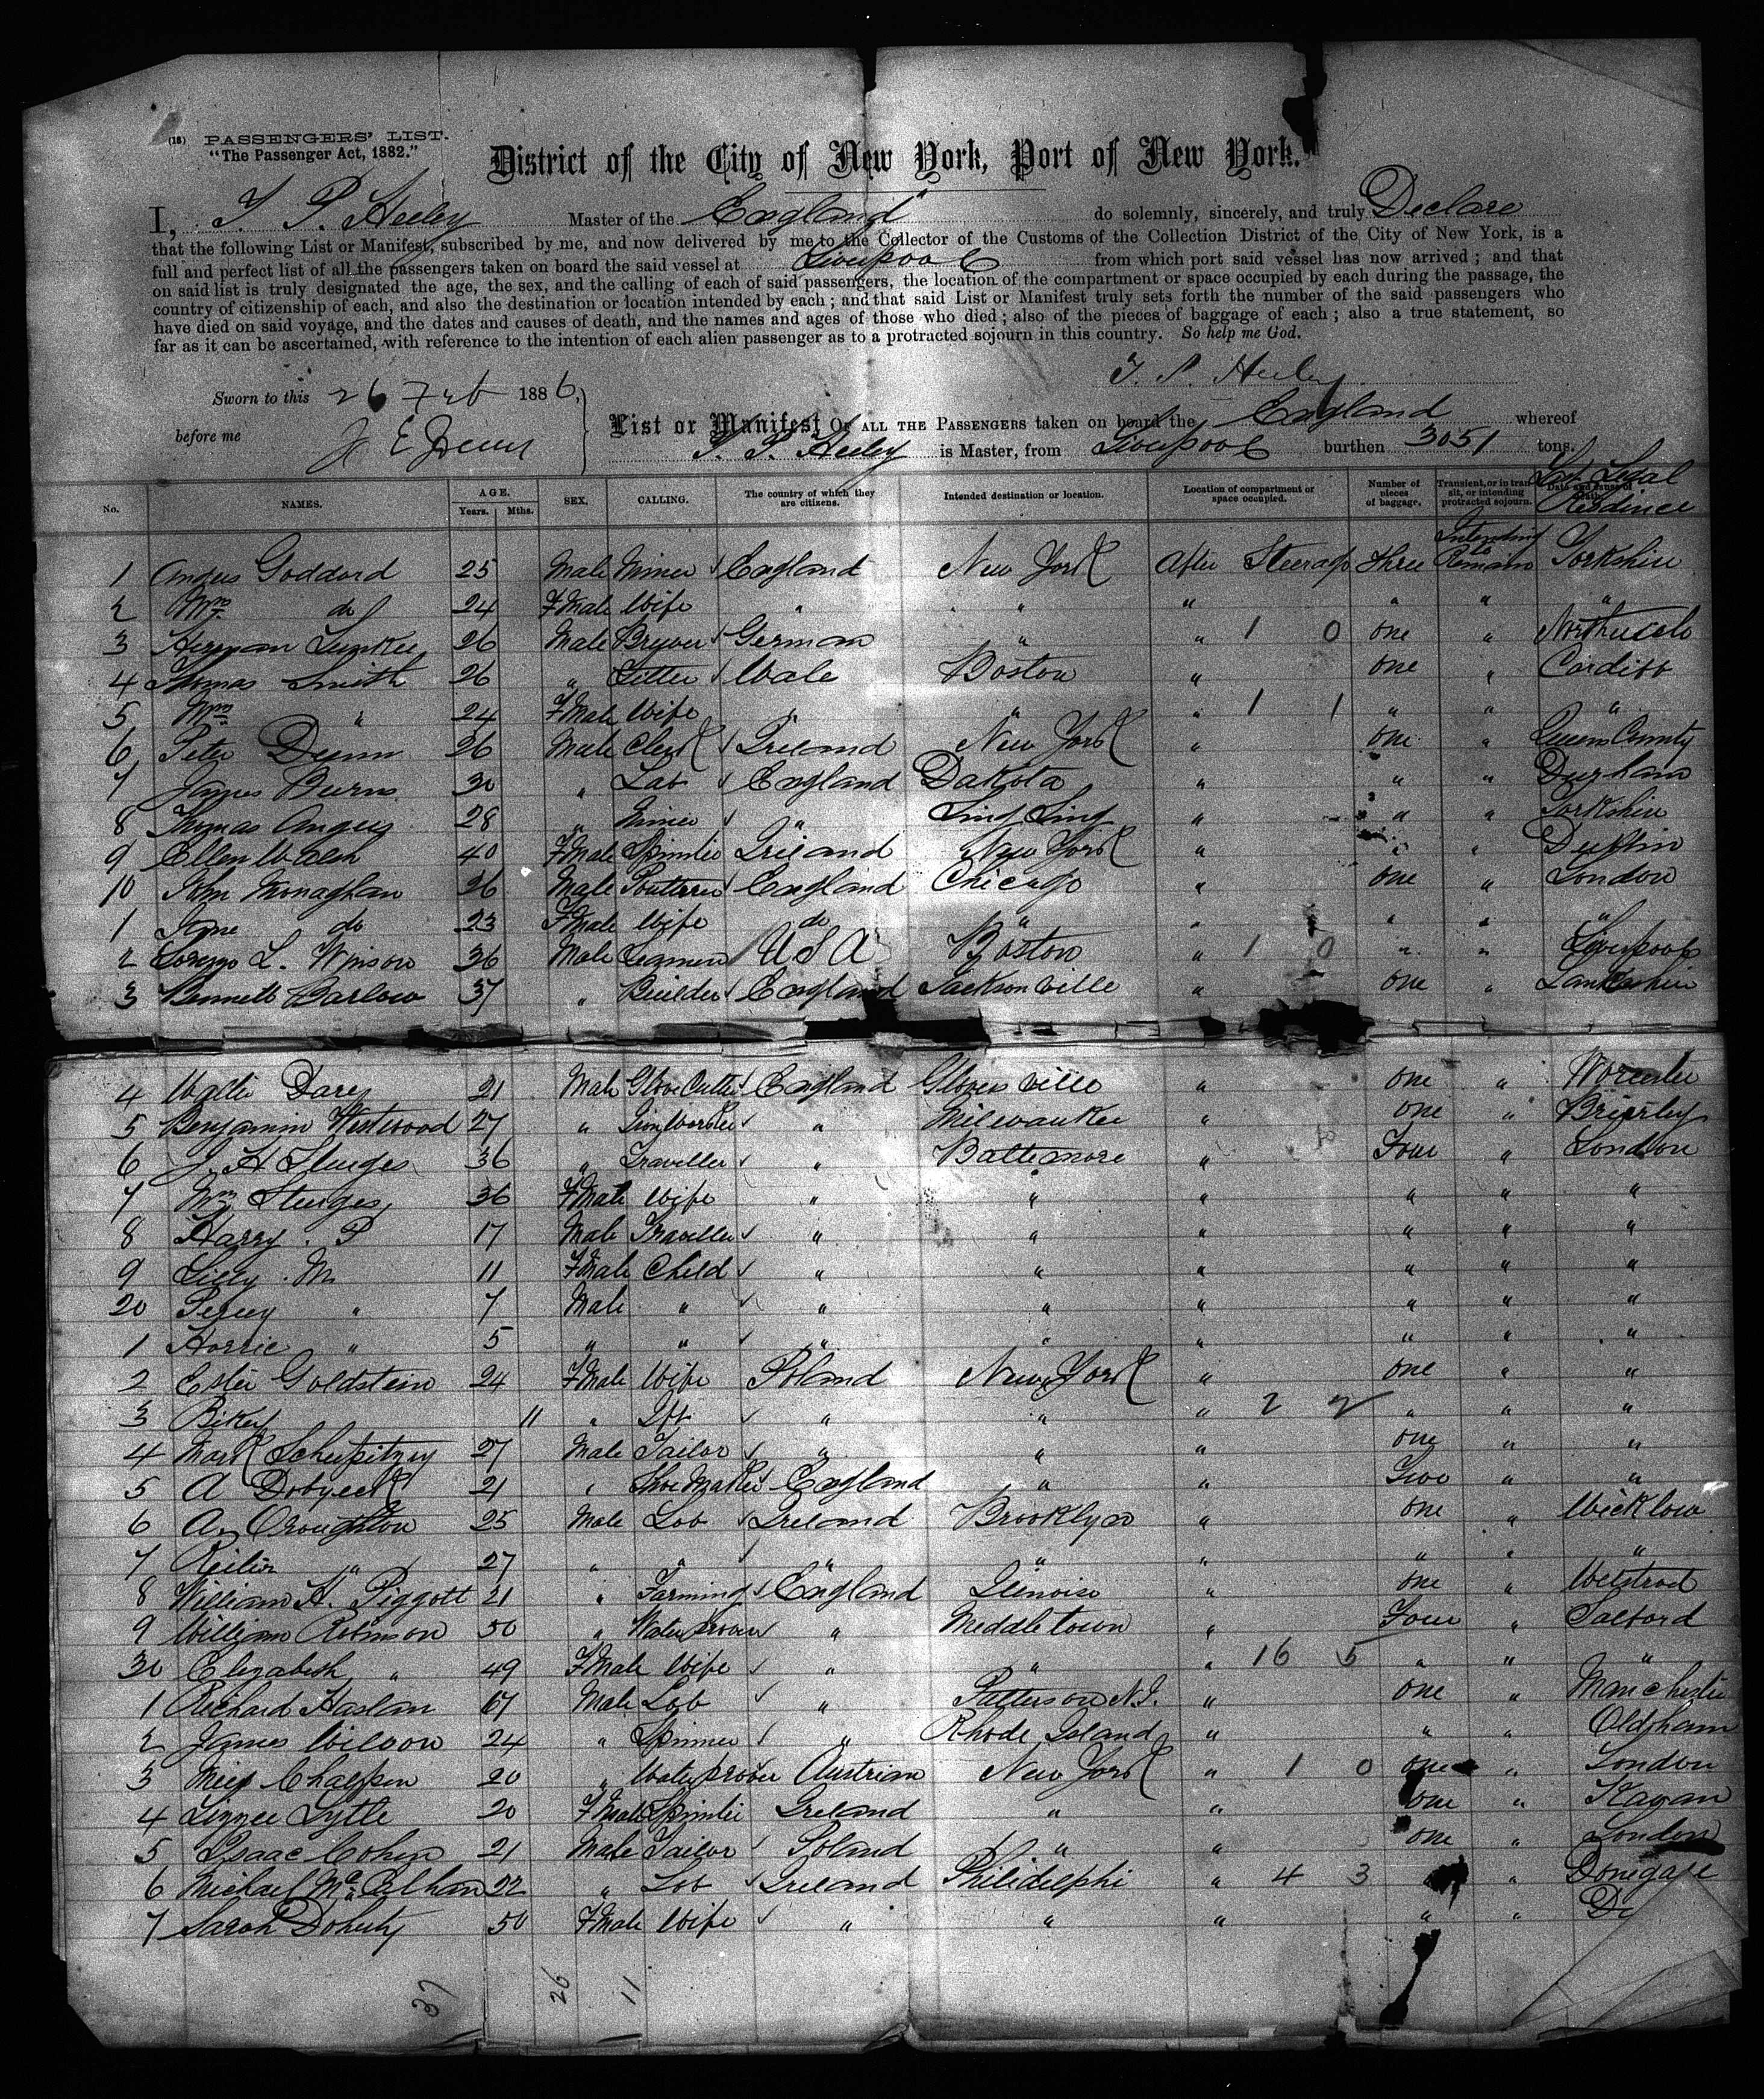 (18) PASSENGERS' LIST.
"The Passenger Act, 1882."
District of the City of New York, Port of New York.
I, T. P. Heeley Master of the "England" do solemnly, sincerely, and truly Declare
that the following List or Manifest, subscribed by me, and now delivered by me to the Collector of the Customs of the Collection District of the City of New York, is a
full and perfect list of all the passengers taken on board the said vessel at Liverpool from which port said vessel has now arrived; and that
on said list is truly designated the age, the sex, and the calling of each of said passengers, the location of the compartment or space occupied by each during the passage, the
country of citizenship of each, and also the destination or location intended by each; and that said List or Manifest truly sets forth the number of the said passengers who
have died on said voyage, and the dates and causes of death, and the names and ages of those who died; also of the pieces of baggage of each; also a true statement, so
far as it can be ascertained, with reference to the intention of each alien passenger as to a protracted sojourn in this country. So help me God.
T. P. Heeley
Sworn to this 26 Feb 1886,
before me
List or Manifest OF ALL THE PASSENGERS taken on board the England whereof
T. P. Heeley is Master, from Liverpool burthen 3051 tons.
No. NAMES. AGE. Years. Mths. SEX. CALLING. The country of which they are citizens. Intended destination or location. Location of compartment or space occupied. Number of pieces of baggage. Transient, or in transit, or intending protracted sojourn. Last Legal Residence
1 Angus Goddard 25 Male Miner England New York After Steerage Three Intending to Remain Yorkshire
2 Mrs do 24 FMale Wife " " " " " "
3 Herman 26 Male German " " 1 0 one "
4 Thomas Smith 26 " Fitter Wale Boston " one " Cardiff
5 Mrs " 24 FMale Wife " " " 1 1 " " "
6 Peter Dunn 26 Male Clerk Ireland New York " one " Queens County
7 James Burns 30 " Lab England Dakota " " " Durham
8 Thomas Angus 28 " Miner " Sing Sing " " " Yorkshire
9 Ellen Walsh 40 FMale Spinster Ireland New York " " " Dublin
10 John Monaghan 26 Male England Chicago " one " London
1 Jane do 23 FMale Wife do " " " " "
2 Lorenzo L. Winsow 36 Male Seaman U S A Boston " 1 0 " " Liverpool
3 Bennett Barlow 37 " Builder England Jacksonville " one " Lankashire
4 Walter Darey 21 Male Glove Cutter England Gloversville " one " Worcester
5 Benjamin Westwood 27 " Iron Worker " Milwaukee " one " Brierley
6 J. H Sturges 36 " Traveller " Baltimore " Four " London
7 Mrs Sturges 36 FMale Wife " " " " " "
8 Harry . P 17 Male Traveller " " " " " "
9 Lilly . M 11 FMale Child " " " " " "
20 Percy " 7 Male " " " " " " "
1 Horrie " 5 " " " " " " " "
2 Ester Goldstein 24 FMale Wife Poland New York " one " "
3 Rikey 11 " Ift " " " 2 2 " " "
4 Mark 27 Male Tailor " " " one " "
5 A Dobyeck 21 " Shoe Maker England " " Two " "
6 A. Croughton 25 Male Lab Ireland Brooklyn " one " Wicklow
7 " 27 " " " " " " " "
8 William H. Piggott 21 " Farming England Illinois " one "
9 William Robinson 50 " Waterprover " Meddletown " Four " Salford
30 Elizabeth " 49 FMale Wife " " " 16 5 " " "
1 Richard Haslam 17 Male Lab " Patterson N.J. " one " Manchester
2 James Wilson 24 " Spinner " Rhode Island " " " Oldham
3 20 " Waterprover Austrian New York " 1 0 one " London
4 Lizzee Lytle 20 FMale Spinster Ireland " " one "
5 Isaac Cohen 21 Male Tailor Poland " " one " London
6 Michael 22 " Lab Ireland Philidelphi " 4 3 " " Donegal
7 Sarah Doherty 50 FMale Wife " " " " " Do
37 26 11